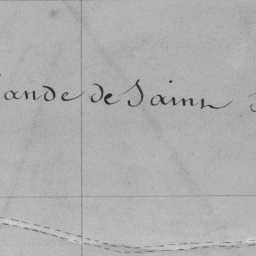 ande de Saint